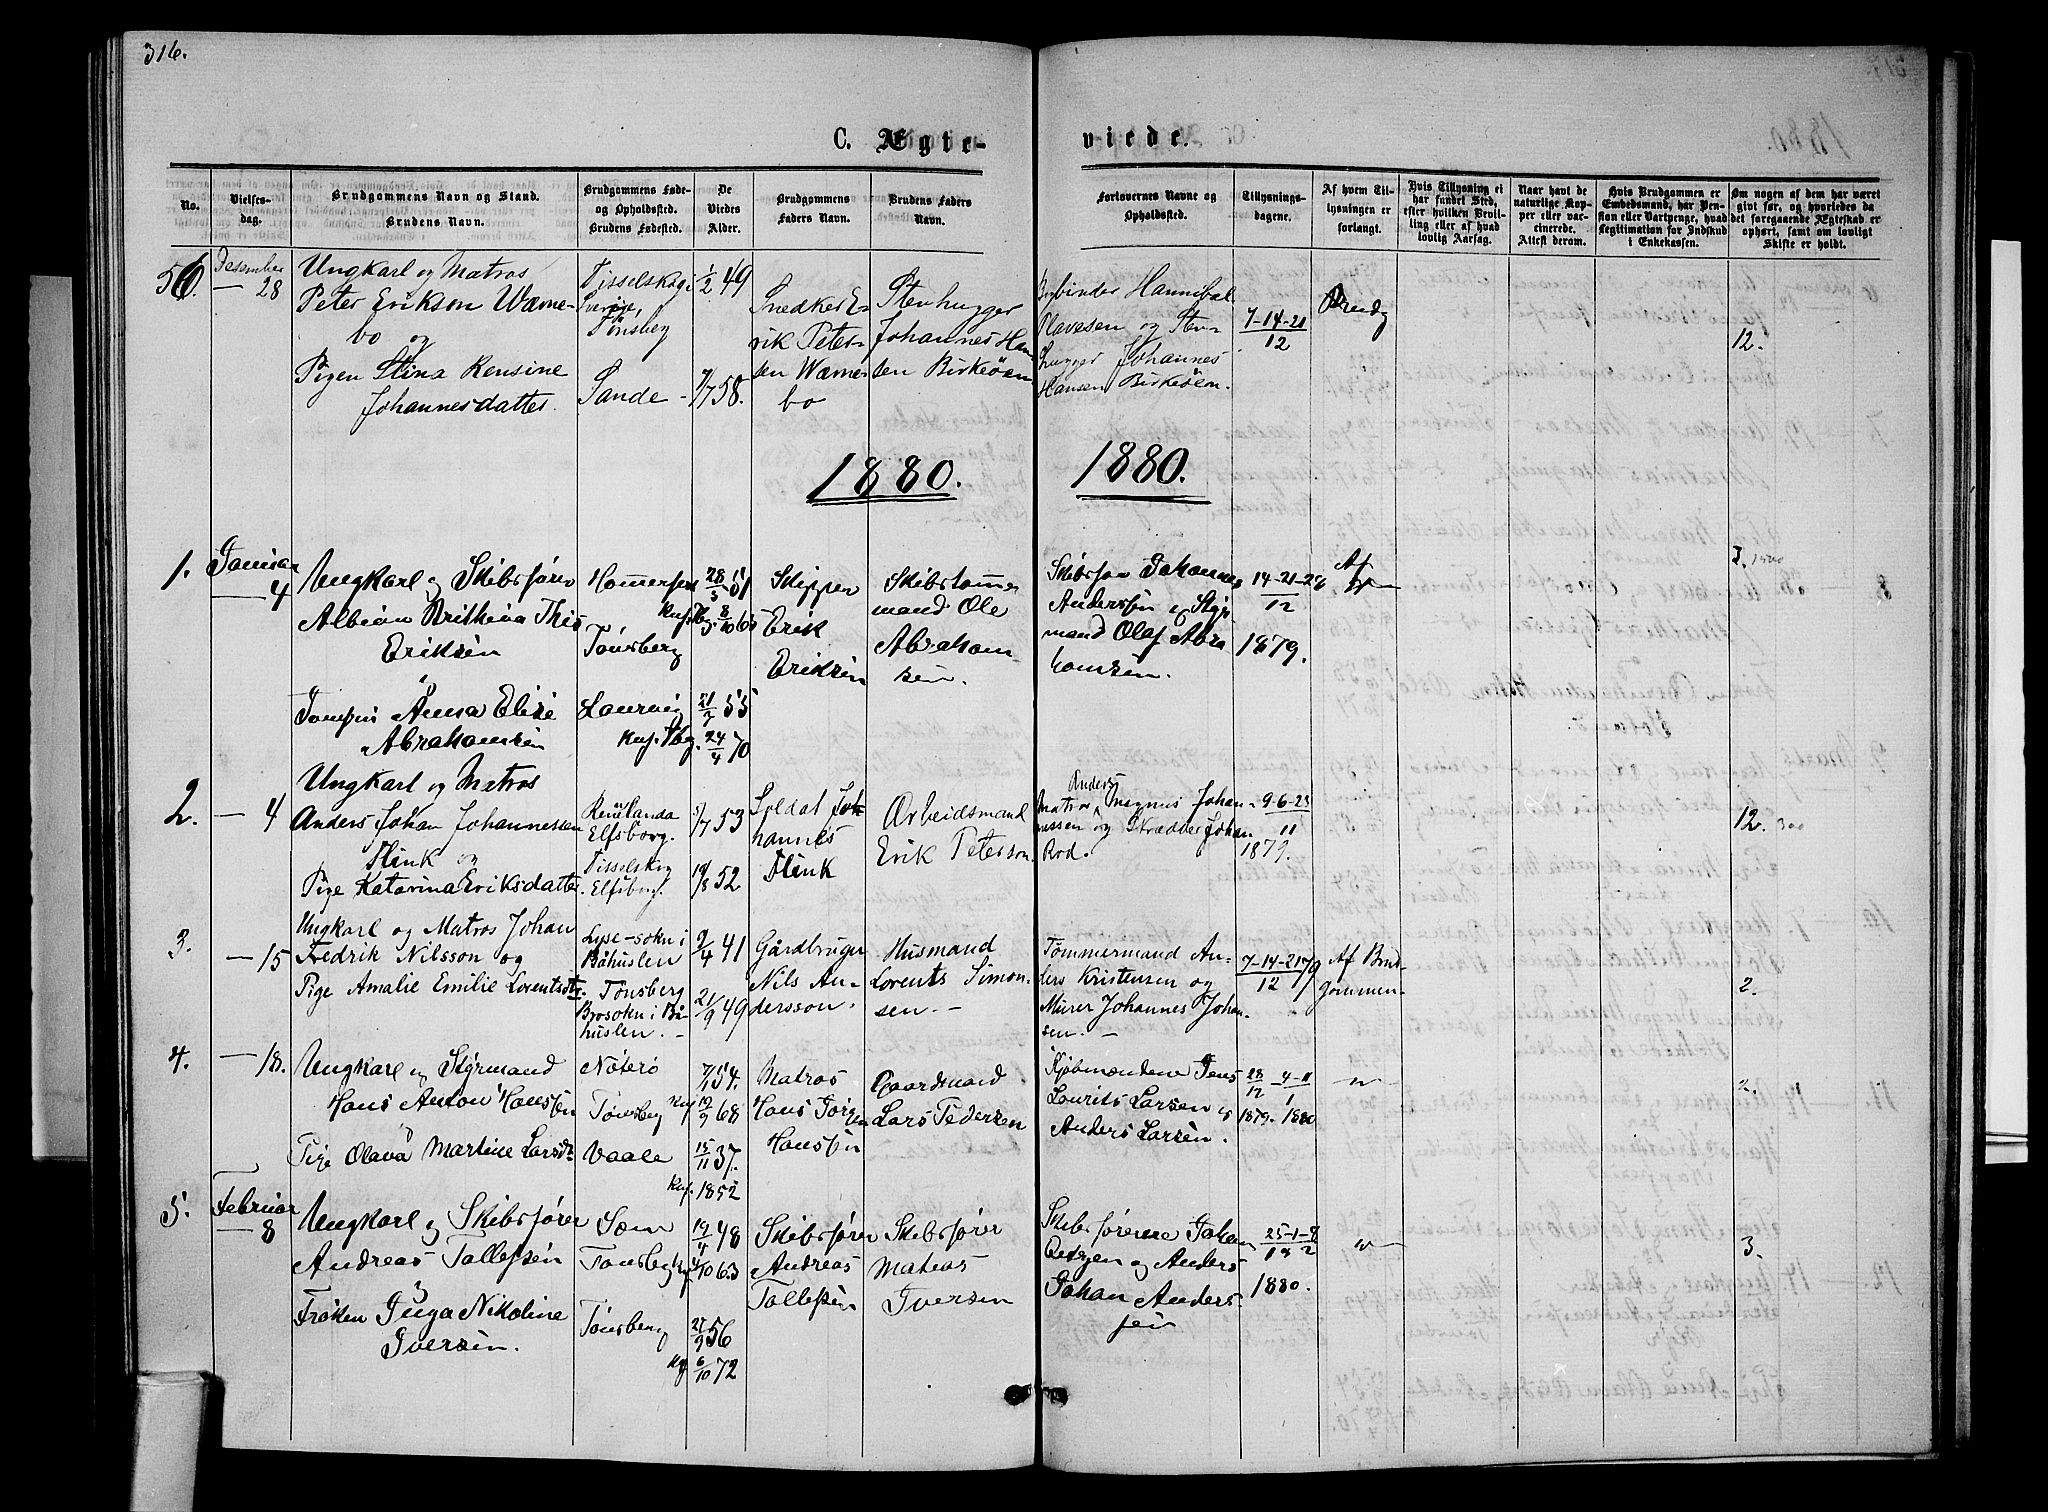 316.
C. Ægte-
viede.
No.
Vielses-
dag.
Brudgommens Navn og Stand.
Brudens Navn.
Brudgommens Føde-
og Opholdssted.
Brudens Fødested.
De
Viedes
Alder.
Brudgommens
Faders Navn.
Brudens Faders
Navn.
Forlovernes Navne og
Opholdssted.
Tillysnings-
dagene.
Af hvem Til-
lysningen er
forlangt.
Hvis Tillysning ei
har fundet Sted,
efter hvilken Bevil-
ling eller af hvad
lovlig Aarsag.
Naar havt de
naturlige Kop-
per eller vac-
cinerede.
Attest derom.
Hvis Brudgommen er
Embedsmand, har Pen-
sion eller Vartpenge, hvad
Legitimation for Indskud
i Enkekassen.
Om nogen af dem har været
givt før, og hvorledes da
det foregaaende Ægteskab er
ophørt, samt om lovligt
Skifte er holdt.
56.
Desember
— 28
Ungkarl og Matros
Peter Erikson Wærne-
bo og
Pigen Stina Rensine
Johannesdatter.
Tisselskog i
Sverige,
Tönsberg
Sande -
1/2 49
7/7 58.
Snedker E-
rik Peter-
sen Wærne-
bo
Stenhugger
Johannes Han-
sen Birkeöen
Hannibal
Olavesen og Sten-
hugger Johannes
Hansen Birkeöen.
7-14-21
12
12.
1880.
1880.
1.
Januar
— 4
Ungkarl og Skibsfører
Eriksen
Anna Elise
Abrahamsen
Tönsberg
Laurvig
28/5 51
8/10 65
21/7 55
24/4 70
Skipper
Erik
Eriksen
Skibstømmer
mand Ole
Abraham-
sen.
Johannes
Anderssen og Styr
mand Olaf Abra
hamsen.
14-21-28
12
1879.
Af
2.
— 4
Ungkarl og Matros
Anders Johan Johannessen
Flink og
Pige Katarina Eriksdatter
Elfsborg.
Tisselskog
Elfsborg.
5/7 53
19/8 52
Soldat Joh-
hannes
Flink
Arbeidsmand
Erik Peterson.
Anders
Matros Magnus Johan-
nessen og Skrædder Johan
Rod.
9-6-23
11
1879.
12. 300
3.
— 15
Ungkarl og Matros Johan
Fredrik Nilsson og
Pige Amalie Emilie Lorentsdtr.
Lyse-sokn i
Båhuslen
Tönsberg
Brosokn i Bå-
huslen. -
9/4 41
21/9 49
Gårdbruger
Nils An-
dersson.
Husmand
Lorents Simon-
sen. -
Tömmermand An-
ders Kristensen og
Murer Johannes Johan-
sen. -
7-14-21 79
12
Af Brud-
gommen-
2.
4.
— 18.
Ungkarl og Styrmand
Hans Anton Hansen
Pige Olava Martine Larsdtr
Nöterö
Tönsberg
Vaale
7/1 54.
19/9 68
15/11 37.
1852
Matros
Hans Jörgen
Hansen
Gaardmand
Lars Pedersen
Kjöbmændene Jens
Laurits Larsen og
Anders Larsen.
28 - 4-11
12 1
1879. 1880
2.
5.
Februar
— 8
Ungkarl og Skibsfører
Andreas Tollefsen
Frøken Inga Nikoline
Iversen.
Sæm
Tönsberg
Tönsberg
19/4 48
4/10 63
27/9 56
6/10 72
Skibsfører
Andreas
Tollefsen
Skibsfører
Matias
Iversen
Skibsførerne Johan
og Anders
Johan Anders
sen
25-1-8
1 2
1880.
3.